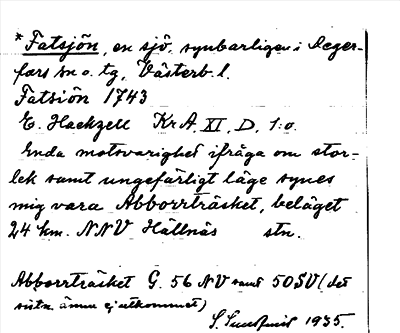 *Fatsjön, en sjö, synbarligen i Deger-
fors sn o. tg, Västerb. l.
Fatsiön 1743
E. Hackzell Kr A. XI, D, 1:o.
Enda motsvarighet ifråga om stor-
lek samt ungefärligt läge synes
mig vara Abborrträsket, beläget
24 km. NNV Hällnäs stn.
Abborrträsket G. 56 NV samt 50 SV (det
sista ännu ej utkommet)
S. 1935.